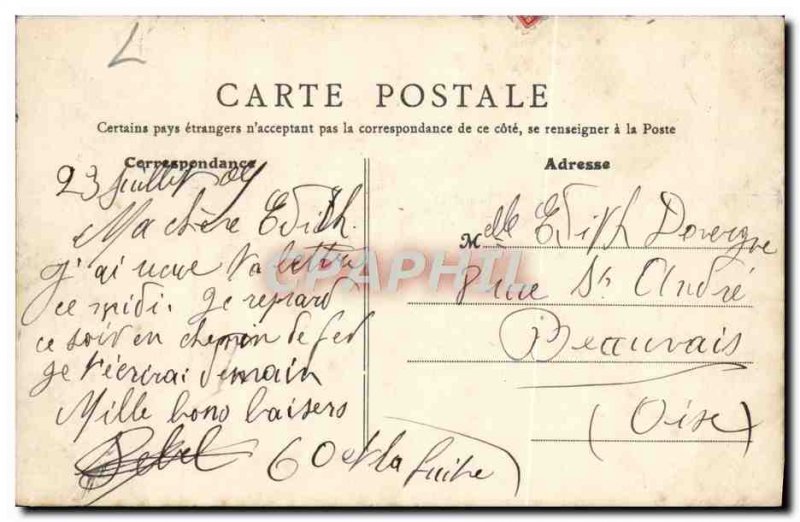 L
CARTE POSTALE
Certains pays étrangers n'acceptant pas la correspondance de ce côté, se renseigner à la Poste
Correspondance
23 Juillet
Ma chère Edith.
j'ai ta lettre
ce midi. Je repars
ce soir en chemin de fer
Je t'écrirai demain
Mille bons baisers
60 et la suite)
Adresse
Melle Edith
8 rue St André
Beauvais
(Oise)
CPAPHIL